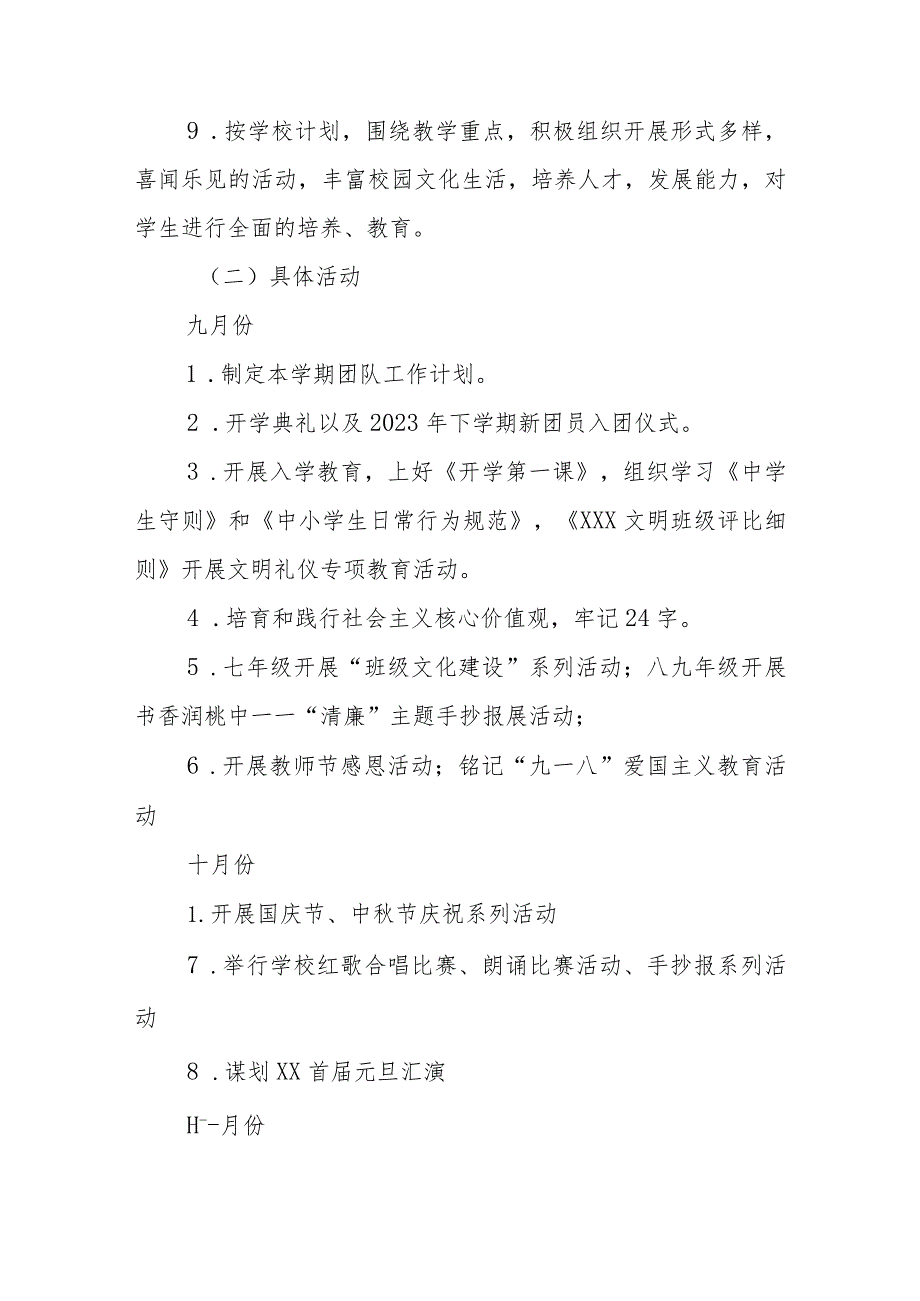 9 .按学校计划，围绕教学重点，积极组织开展形式多样，
喜闻乐见的活动，丰富校园文化生活，培养人才，发展能力，对
学生进行全面的培养、教育。
（二）具体活动
九月份
1 .制定本学期团队工作计划。
2 .开学典礼以及 2023 年下学期新团员入团仪式。
3 .开展入学教育，上好《开学第一课》，组织学习《中学
生守则》和《中小学生日常行为规范》，《XXX 文明班级评比细
则》开展文明礼仪专项教育活动。
4 .培育和践行社会主义核心价值观，牢记 24 字。
5 .七年级开展“班级文化建设”系列活动；八九年级开展
书香润桃中一一“清廉”主题手抄报展活动；
6 .开展教师节感恩活动；铭记“九一八”爱国主义教育活
动
十月份
1.开展国庆节、中秋节庆祝系列活动
7 .举行学校红歌合唱比赛、朗诵比赛活动、手抄报系列活
动
8 .谋划 XX 首届元旦汇演
H--月份